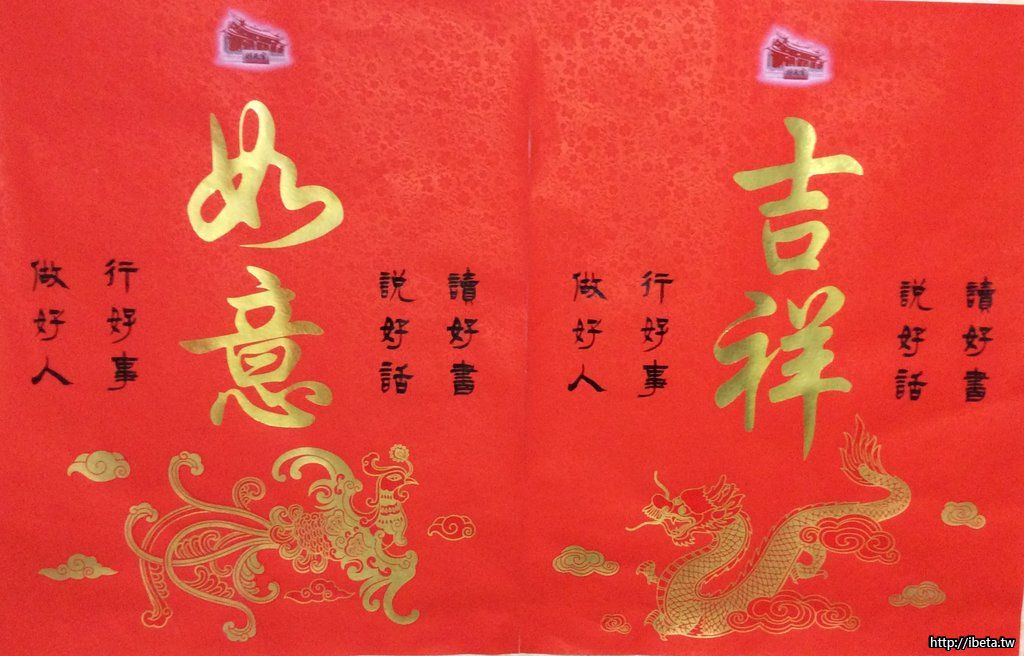 吉祥
讀好書
說好話
行好事
做好人
如意
讀好書
說好話
行好事
做好人
http://ibeta.tw